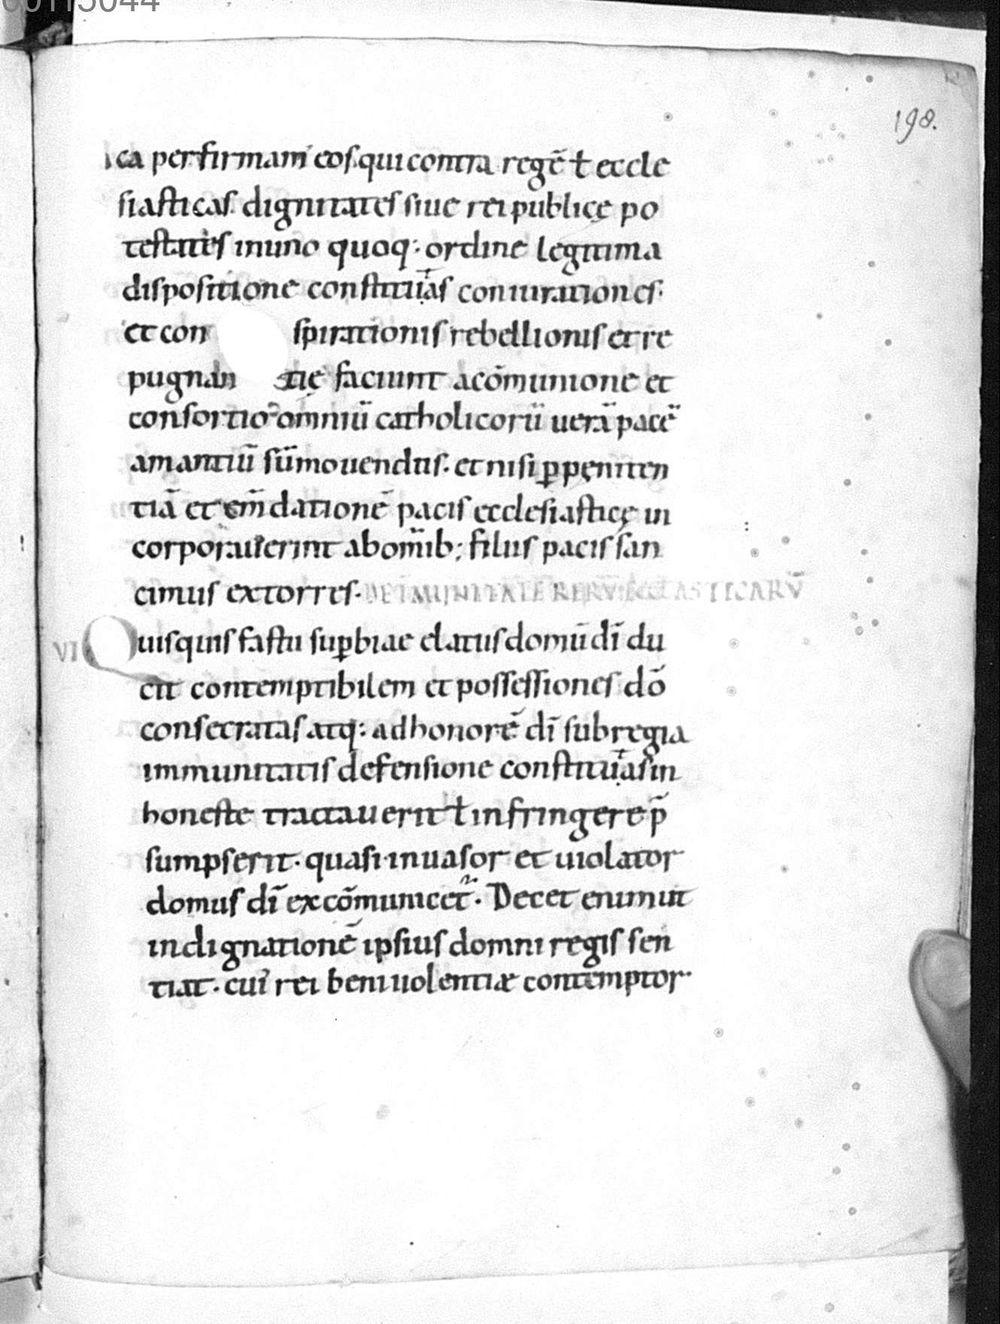 60113044
198.
ica perfirmam eos qui contra regē ł eccle
siasticas dignitates siue rei publicę po
testates in uno quoq; ordine legitima
dispositione constitutas coniurationes.
et con spirationis rebellionis et re
pugnan tię faciunt acōmunione et
consortio omniū catholicorū uerā pacē
amantiū sūmouendus. et nisi p peniten
tiā et emdationē pacis ecclesiasticę in
corporauerint abomib; filiis pacis san
cimus extorres. RERV ECCLASTICARV̄
VI Quisquis fastu supbiae elatus domū dī du
cit contemptibilem et possessiones dō
consecratas atq; ad honorē dī sub regia
immunitatis defensione constitutas in
honeste tractauerit ł infringere p̄
sumpserit. quasi inuasor et uiolator
domus dī excōmunicet. Decet enim ut
indignationē ipsius domni regis sen
tiat. cui rei beniuolentiæ contemptor